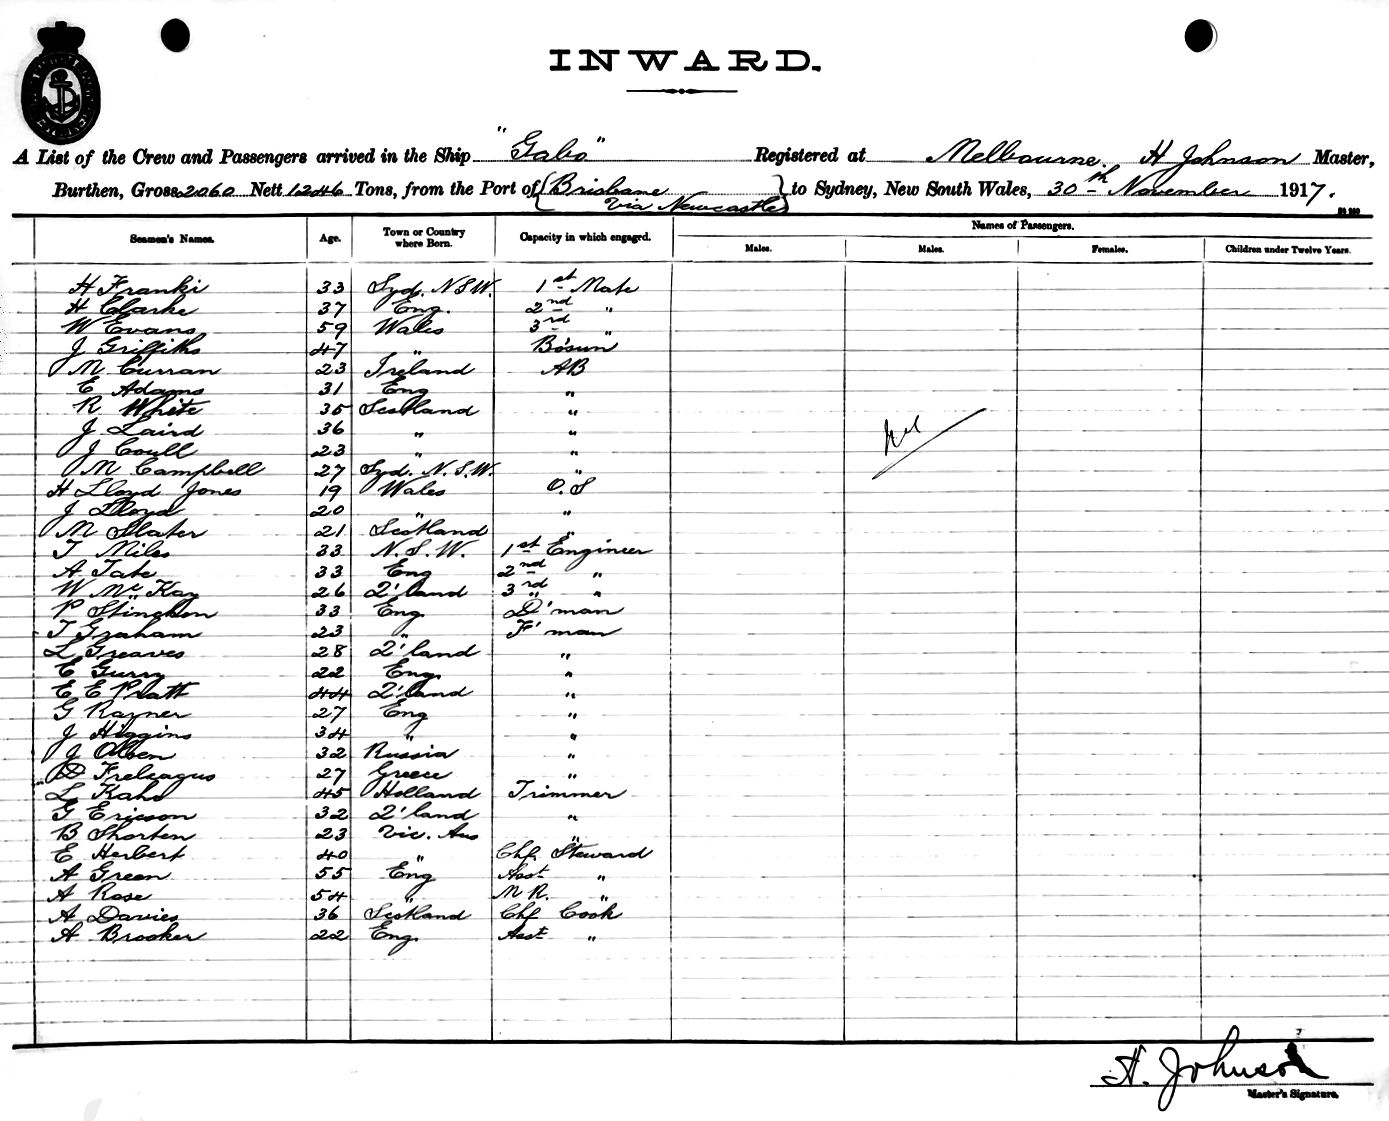 INWARD.
A List of the Crew and Passengers arrived in the Ship "Gabo" Registered at Melbourne. H Johnson Master,
Burthen, Gross 2060 Nett 1246 Tons, from the Port of { Brisbane via Newcastle } to Sydney, New South Wales, 30th November 1917.
Names of Passengers.
Seamen's Names. Age. Town or Country where Born. Capacity in which engaged. Males. Males. Females. Children under Twelve Years.
H Franki 33 Syd. N.S.W. 1st Mate
H Clarke 37 Eng. 2nd "
W Evans 59 Wales 3rd "
J Griffiths 47 " Bosun
M Curran 23 Ireland AB
E Adams 31 Eng "
R White 35 Scotland "
J Laird 36 " "
J Coull 23 " "
M Campbell 27 Syd. N.S.W. "
H Lloyd Jones 19 Wales O.S
J Lloyd 20 " "
M Slater 21 Scotland "
T Miles 33 N.S.W. 1st Engineer
A Tate 33 Eng 2nd "
W McKay 26 Q'land 3rd "
P Stinchon 33 Eng. D'man
T Graham 23 " F'man
L Greaves 28 Q'land "
E Gurry 22 Eng. "
E E Pratt 44 Q'land "
G Rayner 27 Eng "
J Higgins 34 " "
J Olsen 32 Russia "
D Freleagus 27 Greece "
L Kahs 45 Holland Trimmer
G Ericson 32 Q'land "
B Shorten 23 Vic. Aus "
E Herbert 40 " Chf. Steward
A Green 55 Eng Asst "
A Rose 54 " M R. "
A Davies 36 Scotland Chf Cook
A Brooker 22 Eng. Asst "
Nil
H. Johnson
Master's Signature.